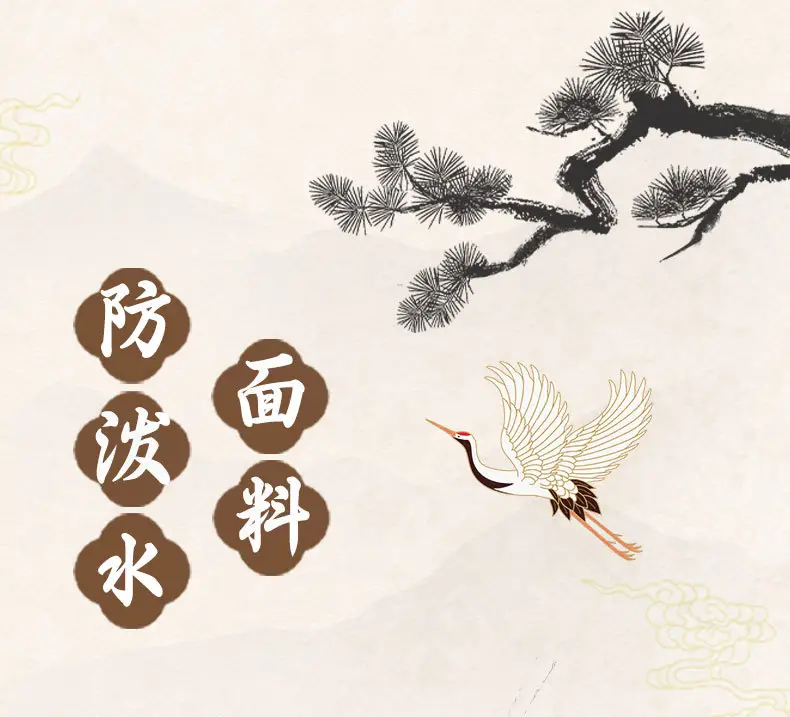 防泼水
面料